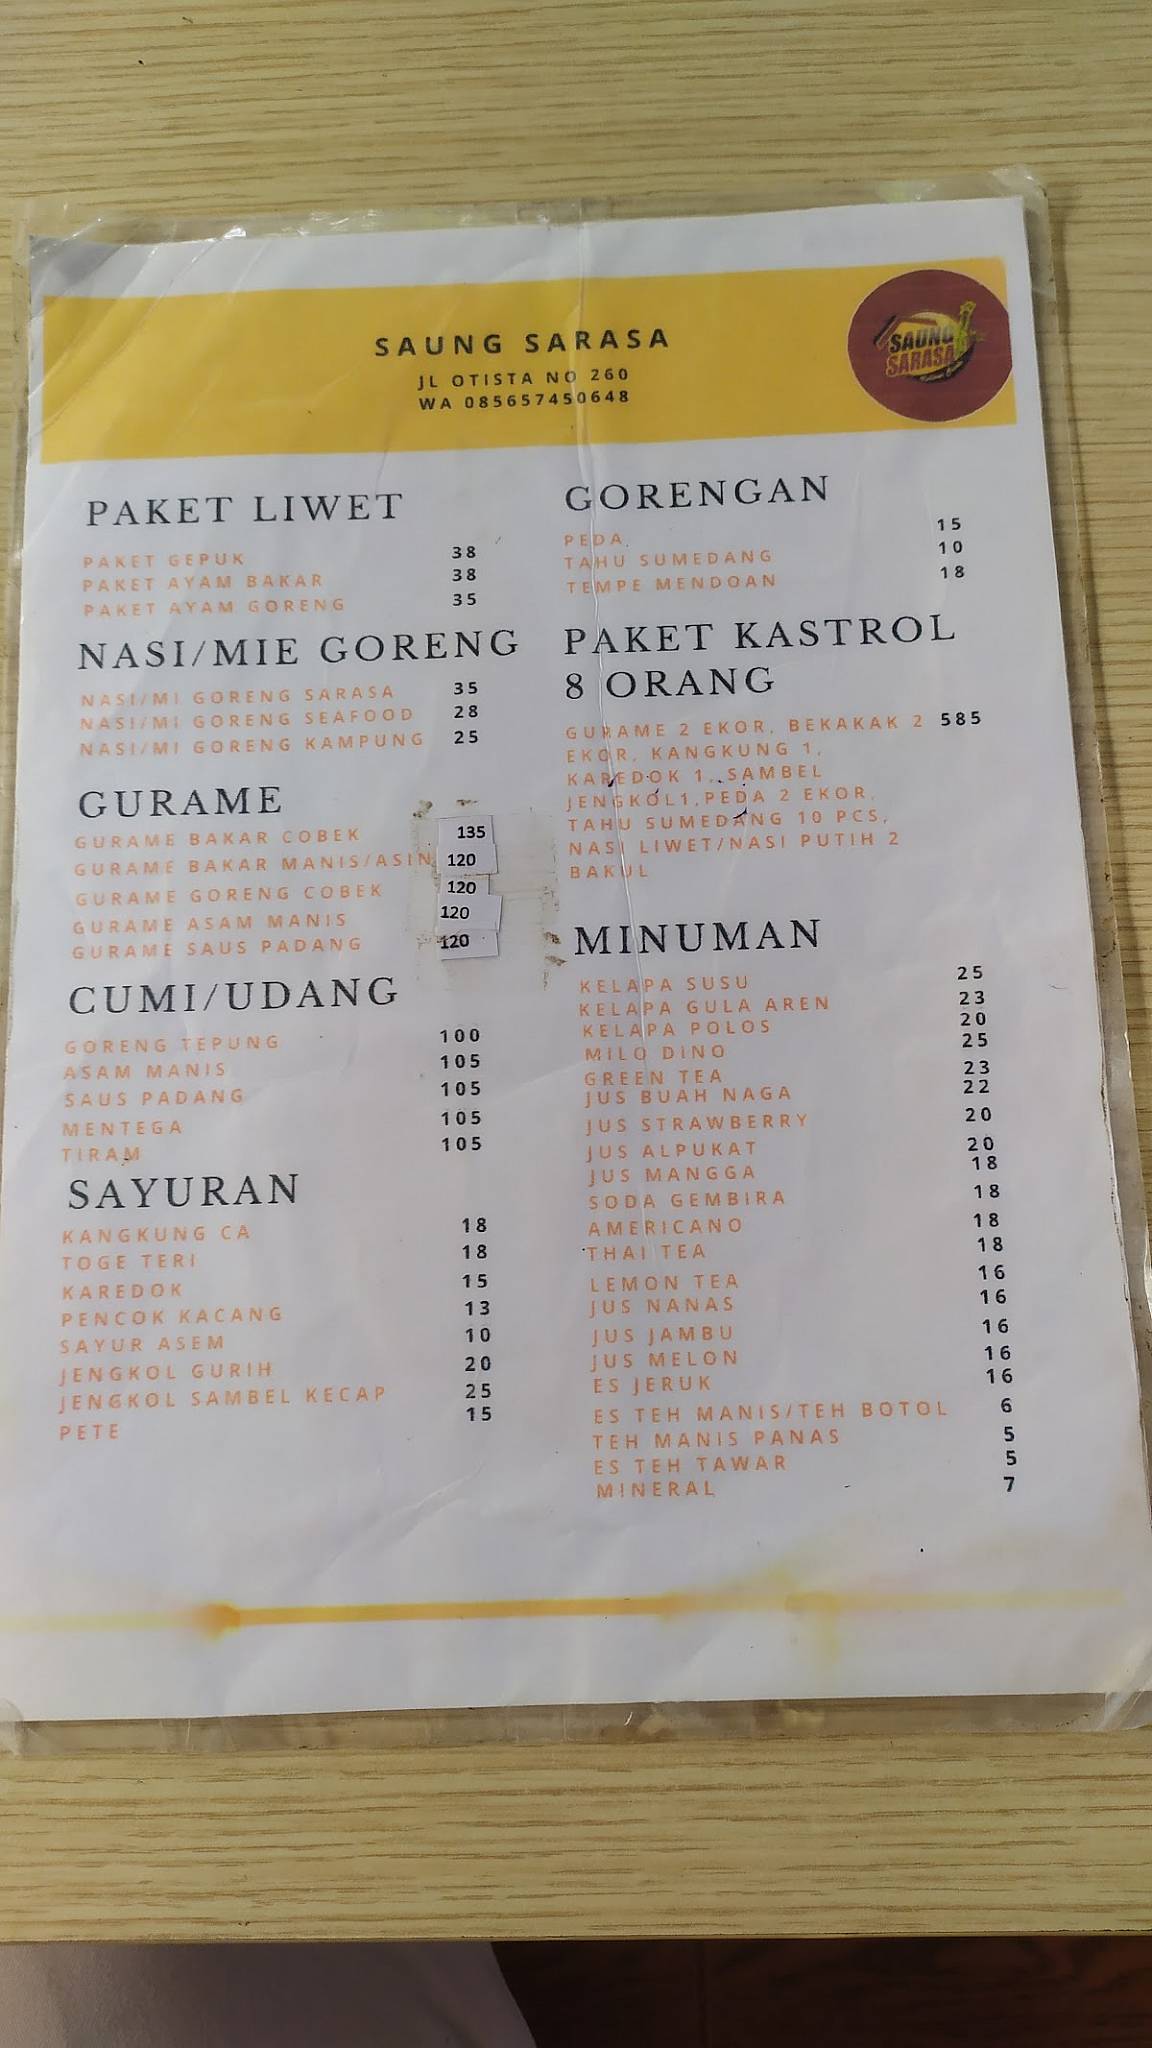 SAUNG SARASA
JL OTISTA NO 260
WA 085657450648
SAUNG
SARASA
PAKET LIWET
PAKET GEPUK 38
PAKET AYAM BAKAR 38
PAKET AYAM GORENG 35
NASI/MIE GORENG
NASI/MI GORENG SARASA 35
NASI/MI GORENG SEAFOOD 28
NASI/MI GORENG KAMPUNG 25
GURAME
GURAME BAKAR COBEK 135
GURAME BAKAR MANIS/ASIN 120
GURAME GORENG COBEK 120
GURAME ASAM MANIS 120
GURAME SAUS PADANG 120
CUMI/UDANG
GORENG TEPUNG 100
ASAM MANIS 105
SAUS PADANG 105
MENTEGA 105
TIRAM 105
SAYURAN
KANGKUNG CA 18
TOGE TERI 18
KAREDOK 15
PENCOK KACANG 13
SAYUR ASEM 10
JENGKOL GURIH 20
JENGKOL SAMBEL KECAP 25
PETE 15
GORENGAN
PEDA 15
TAHU SUMEDANG 10
TEMPE MENDOAN 18
PAKET KASTROL
8 ORANG
GURAME 2 EKOR, BEKAKAK 2 585
EKOR, KANGKUNG 1,
KAREDOK 1, SAMBEL
JENGKOL1,PEDA 2 EKOR,
TAHU SUMEDANG 10 PCS,
NASI LIWET/NASI PUTIH 2
BAKUL
MINUMAN
KELAPA SUSU 25
KELAPA GULA AREN 23
KELAPA POLOS 20
MILO DINO 25
GREEN TEA 23
JUS BUAH NAGA 22
JUS STRAWBERRY 20
JUS ALPUKAT 20
JUS MANGGA 18
SODA GEMBIRA 18
AMERICANO 18
THAI TEA 18
LEMON TEA 16
JUS NANAS 16
JUS JAMBU 16
JUS MELON 16
ES JERUK 16
ES TEH MANIS/TEH BOTOL 6
TEH MANIS PANAS 5
ES TEH TAWAR 5
MINERAL 7